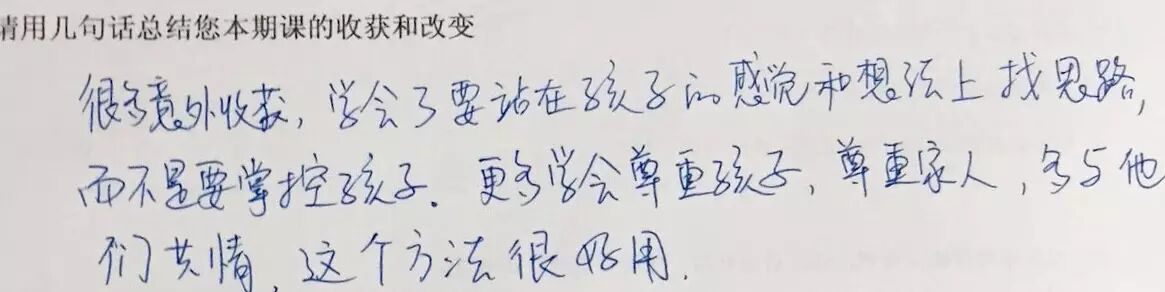 请用几句话总结您本期课的收获和改变
很多意外收获，学会了要站在孩子的感觉和想法上找思路，
而不是要掌控孩子．更多学会尊重孩子，尊重家人，多与他
们共情，这个方法很好用．